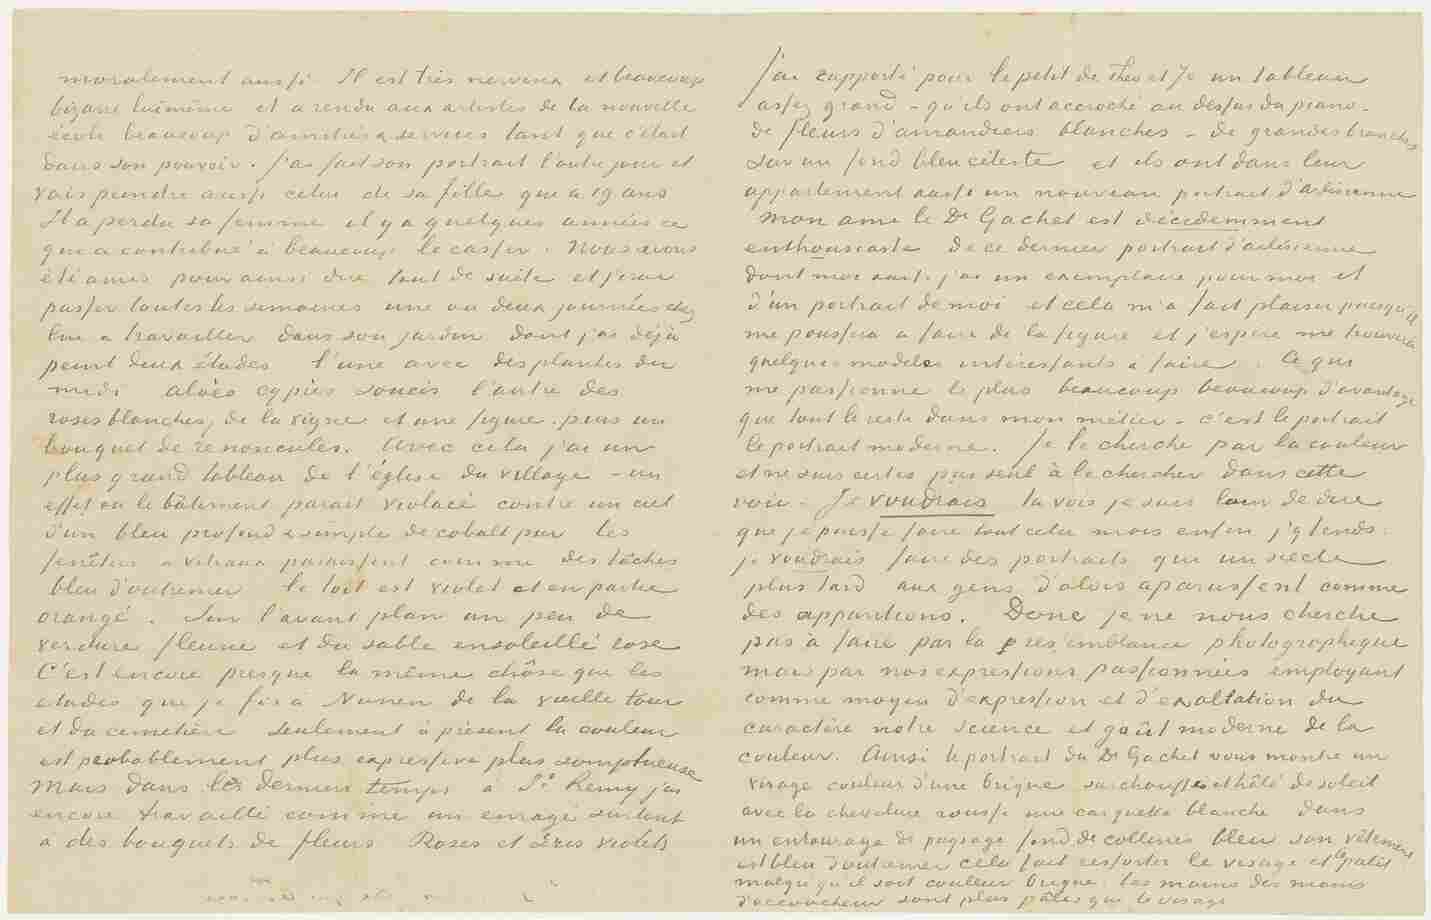 moralement aussi. Il est très nerveux et beaucoup
bizarre lui même et a rendu aux artistes de la nouvelle
école beaucoup d'amitiés & services tant que c'était
dans son pouvoir. J'ai fait son portrait l'autre jour et
vais peindre aussi celui de sa fille qui a 19 ans
Il a perdu sa femme il y a quelques années ce
qui a contribué à beaucoup le casser. Nous avons
été amis pour ainsi dire tout de suite et j'irai
passer toutes les semaines une ou deux journées chez
lui a travailler dans son jardin dont j'ai déjà
peint deux études l'une avec des plantes du
midi aloès cyprès soucis l'autre des
roses blanches, de la vigne et une figure. puis un
bouquet de renoncules. Avec cela j'ai un
plus grand tableau de l'église du village – un
effet ou le bâtiment parait violacé contre un ciel
d'un bleu profond & simple de cobalt pur les
fenêtres a vitraux paraissent comme des tâches
bleu d'outremer le toit est violet et en partie
orangé. Sur l'avant plan un peu de
verdure fleurie et du sable ensoleillé rose
C'est encore presque la même chôse que les
etudes que je fis a Nunen de la vieille tour
et du cemetière seulement à présent la couleur
est probablement plus expressive plus somptueuse
Mais dans les derniers temps à St Remy j'ai
encore travaillé comme un enragé surtout
a des bouquets de fleurs Roses et Iris violets
J'ai rapporté pour le petit de Theo et Jo un tableau
assez grand – qu'ils ont accroché au dessus du piano –
de fleurs d'amandiers blanches – de grandes branches
sur un fond bleu céleste et ils ont dans leur
appartement aussi un nouveau portrait d'arlesienne
Mon ami le Dr Gachet est décidemment
enthousiaste de ce dernier portrait d'arlésienne
dont moi aussi j'ai un exemplaire pour moi et
d'un portrait de moi et cela m'a fait plaisir puisqu'il
me poussera a faire de la figure et j'espere me trouvera
quelques modèles intéressants à faire. Ce qui
me passionne le plus beaucoup beaucoup d'avantage
que tout le reste dans mon métier – c'est le portrait
le portrait moderne. Je le cherche par la couleur
et ne suis certes pas seul à le chercher dans cette
voie. Je voudrais tu vois je suis loin de dire
que je puisse faire tout cela mais enfin j'y tends.
je voudrais faire des portraits qui un siècle
plus tard aux gens d'alors aparussent comme
des apparitions. Donc je ne nous cherche
pas à faire par la ressemblance photographique
mais par nos expressions passionnées employant
comme moyen d'expression et d'exaltation du
caractère notre science et goût moderne de la
couleur. Ainsi le portrait du Dr Gachet vous montre un
visage couleur d'une brique surchauffé et hâlé de soleil
avec la chevelure rousse une casquette blanche dans
un entourage de paysage fond de collines bleu son vêtement
est bleu d'outremer cela fait ressortir le visage et le pâlit
malgré qu'il soit couleur brique. les mains des mains
d'accoucheur sont plus pâles que le visage